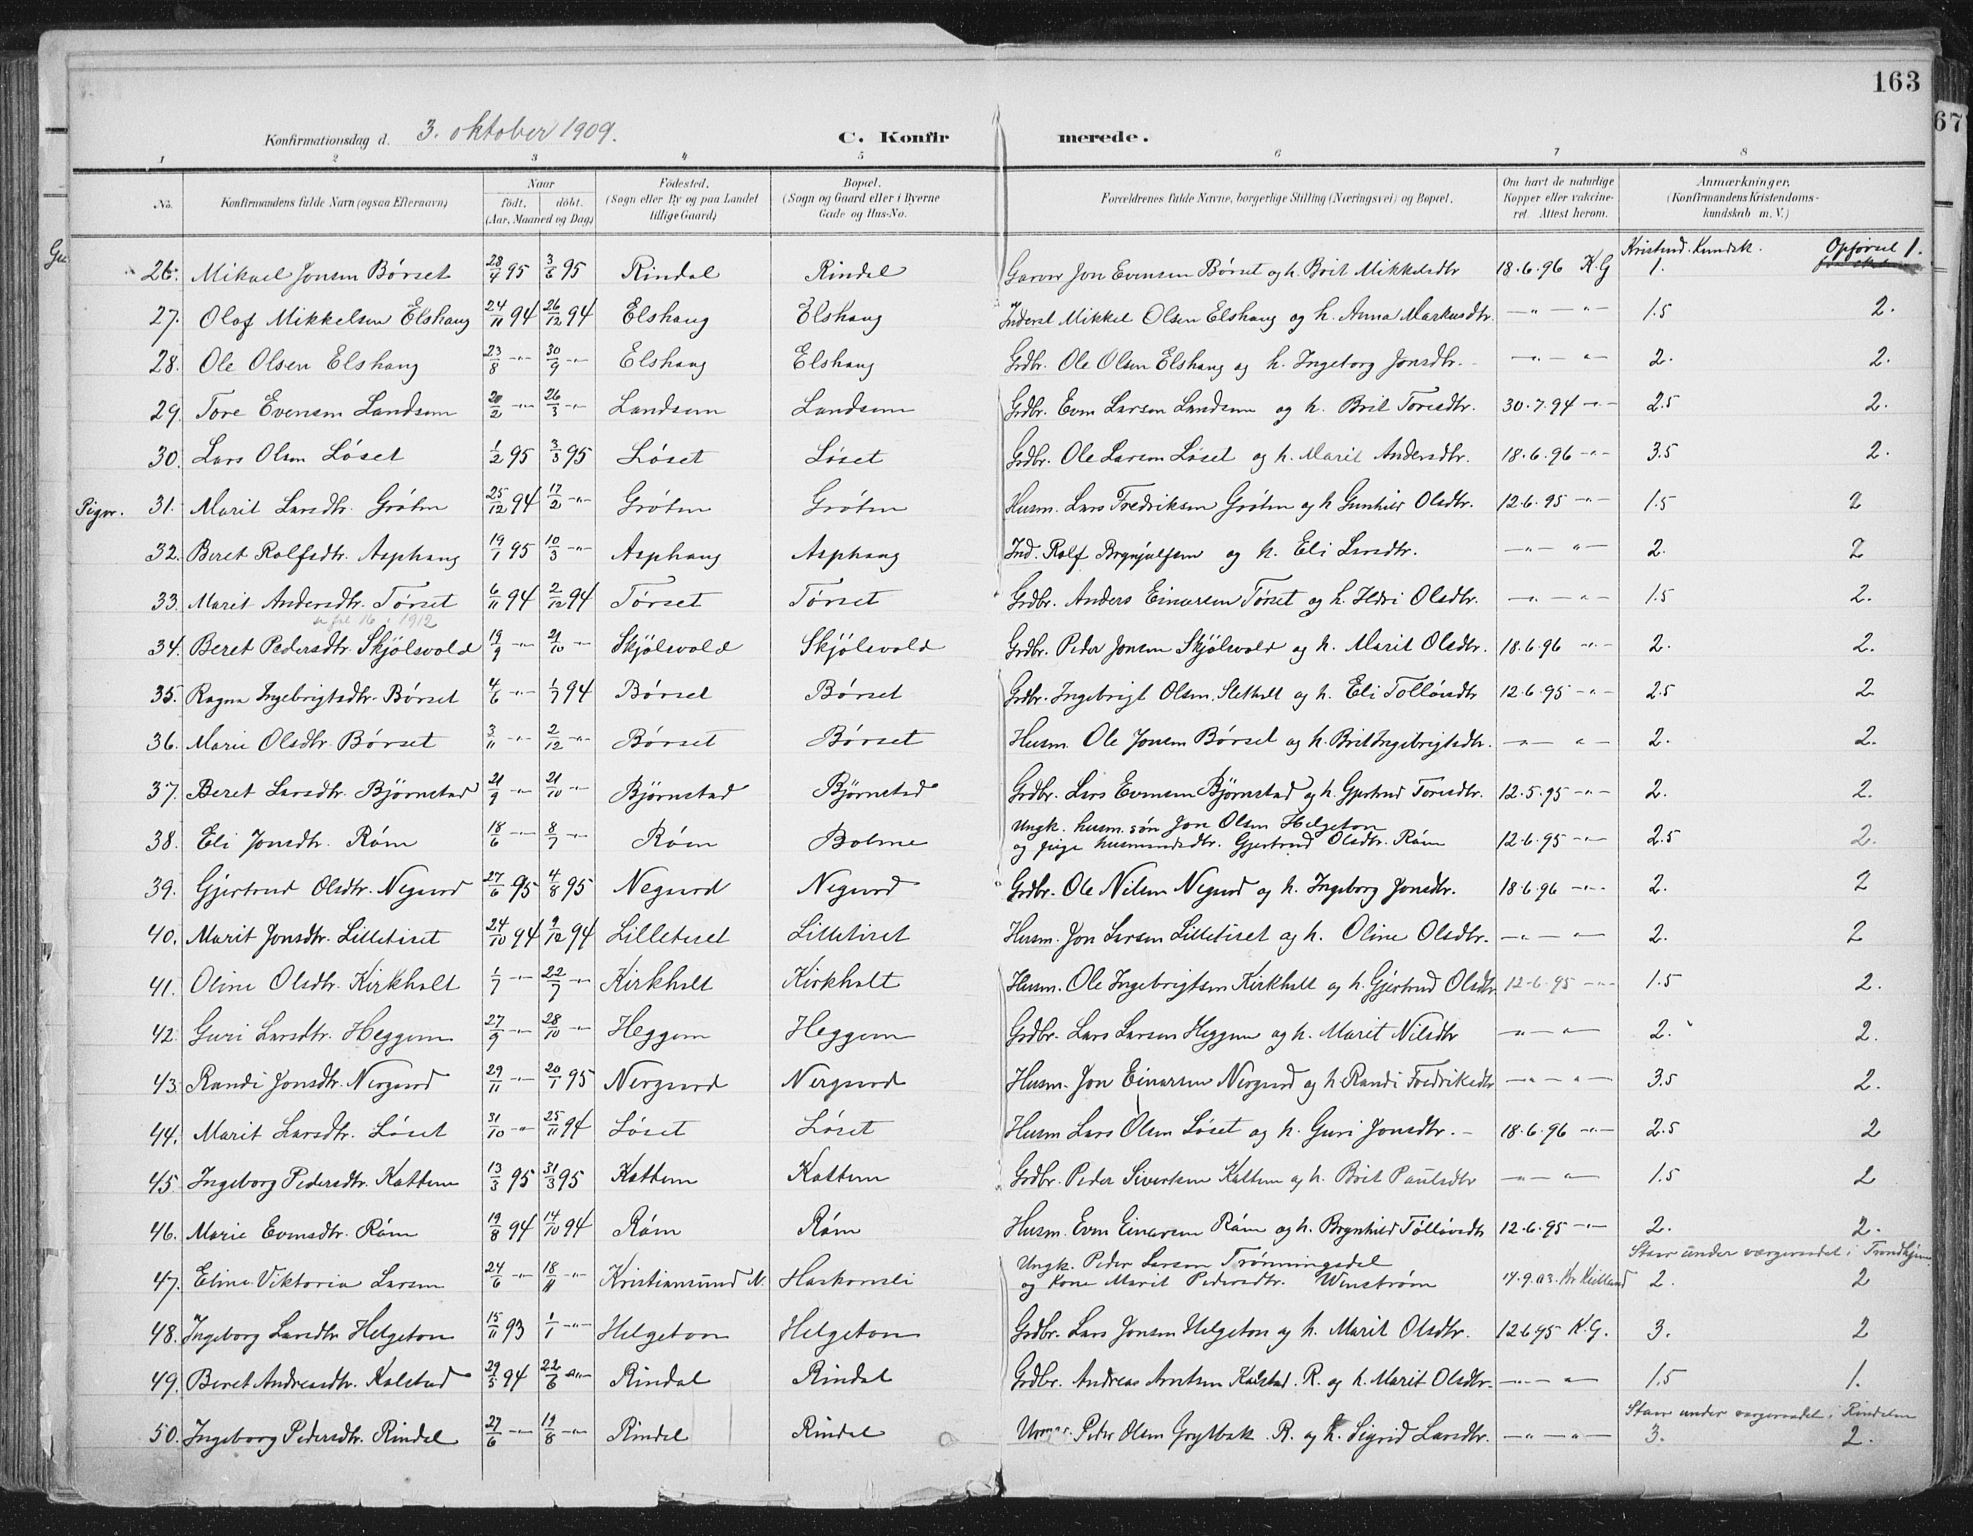 163
67
Konfirmationsdag d. 3. oktober 1909. C. Konfirmerede.
1 2 3 4 5 6 7 8
No. Konfirmandens fulde Navn (ogsaa Efternavn) Naar födt. döbt. (Aar, Maaned og Dag) Födested. (Sogn eller By og paa Landet tillige Gaard) Bopæl. (Sogn og Gaard eller i Byerne Gade og Hus-No. Forældrenes fulde Navne, borgerlige Stilling (Næringsvei) og Bopæl. Om havt de naturlige Kopper eller vakcineret. Attest herom. Anmærkninger. (Konfirmandens Kristendomskundskab m. V.)
Kristend. Kundsk. Opførsel
26. Mikael Jonsen Børset 28/4 95 3/6 95 Rindal Rindal Garver Jon Evensen Børset og h. Brit Mikkelsdtr 18.6.96 K.G 1. 1.
27. Olaf Mikkelsen Elshaug 24/11 94 26/12 94 Elshaug Elshaug Inderst Mikkel Olsen Elshaug og h. Anna Markusdtr. —"— "— 1.5 2.
28. Ole Olsen Elshaug 23/8 —"— 30/9 —"— Elshaug Elshaug Grdbr. Ole Olsen Elshaug og h. Ingeborg Jonsdtr. —"— "— 2. 2.
29. Tore Evensen Landsem 20/2 —"— 26/3 —"— Landsem Landsem Grdbr. Even Larsen Landsem og h. Brit Toresdtr. 30.7.94 —"— 2.5 2.
30. Lars Olsen Løset 1/2 95 3/3 95 Løset Løset Grdbr. Ole Larsen Løset og h. Marit Andersdtr. 18.6.96 —"— 3.5 2.
Piger. 31. Marit Larsdtr. Grøten 25/12 94 17/2 —"— Grøten Grøten Husm. Lars Fredriksen Grøten og h Gunhild Olsdtr. 12.6.95 —"— 1.5 2
32. Beret Rolfsdtr. Asphaug 19/1 95 10/3 —"— Asphaug Asphaug Ind. Rolf Brynjulfsen og h. Eli Larsdtr. —"— "— 2. 2
33. Marit Andersdtr. Tørset 6/11 94 2/12 94 Tørset Tørset Grdbr. Anders Einarsen Tørset og h. Ildri Olsdtr. —"— "— 1.5 2.
1912
34. Beret Pedersdtr. Skjølsvold 19/9 —"— 21/10 —"— Skjølsvold Skjølsvold Grdbr. Peder Jonsen Skjølsvold og h. Marit Olsdtr. 18.6.96 —"— 2. 2.
35. Ragna Ingebrigtsdtr. Børset 4/6 —"— 1/7 94 Børset Børset Grdbr. Ingebrigt Olsen Sletholt og h. Eli Tolløvsdtr 12.6.95 —"— 2.5 2
36. Marie Olsdtr. Børset 3/11 —"— 2/12 —"— Børset Børset Husm. Ole Jonsen Børset og h. Brit Ingebrigtsdtr. —"— "— 2. 2.
37. Beret Larsdtr. Bjørnstad 21/9 —"— 21/10 —"— Bjørnstad Bjørnstad Grdbr. Lars Evensen Bjørnstad og h. Gjertrud Toresdtr. 12.5.95 —"— 2. 2.
38. Eli Jonsdtr. Røm 18/6 —"— 8/7 —"— Røm Bolme Ungk. husm. søn Jon Olsen Helgeton
og pige husmandsdtr. Gjertrud Olsdtr. Røm 12.6.95 —"— 2.5 2.
39. Gjertrud Olsdtr. Negard 27/6 95 4/8 95 Negard Negard Grdbr. Ole Nilsen Negard og h. Ingeborg Jonsdtr. 18.6.96 —"— 2. 2
40. Marit Jonsdtr. Lilletiset 24/10 94 9/12 94 Lilletiset Lilletiset Husm. Jon Larsen Lilletiset og h. Oline Olsdtr. —"— "— 2. 2
41. Oline Olsdtr. Kirkholt 1/7 —"— 22/7 —"— Kirkholt Kirkholt Husm. Ole Ingebrigtsen Kirkholt og h. Gjertrud Olsdtr 12.6.95 —"— 1.5 2.
42. Guri Larsdtr. Heggem 27/9 —"— 28/10 —"— Heggem Heggem Grdbr. Lars Larsen Heggem og h. Marit Nilsdtr —"— "— 2. 2.
43. Randi Jonsdtr. Nergard 29/11 —"— 20/1 95 Nergard Nergard Husm. Jon Einarsen Nergard og h Randi Fredriksdtr —"— "— 3.5 2.
44. Marit Larsdtr. Løset 31/10 —"— 25/11 94 Løset Løset Husm Lars Olsen Løset og h. Guri Jonsdtr. 18.6.96 —"— 2.5 2
45. Ingeborg Pedersdtr. Kattem 13/3 95 31/3 95 Kattem Kattem Grdbr. Peder Sivertsen Kattem og h. Brit Paulsdtr —"— "— 1.5 2
46. Marie Evensdtr. Røm 19/8 94 14/10 94 Røm Røm Husm. Even Einarsen Røm og h. Brynhild Tølløvsdtr 12.6.95 —"— 2. 2.
Staar under værgeraadet i Trondhjem
47. Eline Viktoria Larsen 24/6 —"— 18/11 —"— Kristiansund N. Haskornsli Ungk. Peder Larsen Trønningsdal
og kone Marit Pedersdtr. Wenstrøm 17.9.03. Kr Kielland 2. 2
48. Ingeborg Larsdtr Helgeton 15/11 93 1/1 —"— Helgeton Helgeton Grdbr. Lars Jonsen Helgeton og h. Marit Olsdtr. 12.6.95 K.G. 3. 2
49. Beret Andreasdtr. Kalstad 29/5 94 22/6 —"— Rindal Rindal Grdbr. Andreas Arntsen Kalstad. R. og h. Marit Olsdtr. —"— "— 1.5 1.
Staar under værgeraadet i Rindalen
50. Ingeborg Pedersdtr. Rindal 27/6 —"— 19/8 —"— Rindal Rindal Peder Olsen Grytbak R. og h. Sigrid Larsdtr. —"— "— 3. 2.